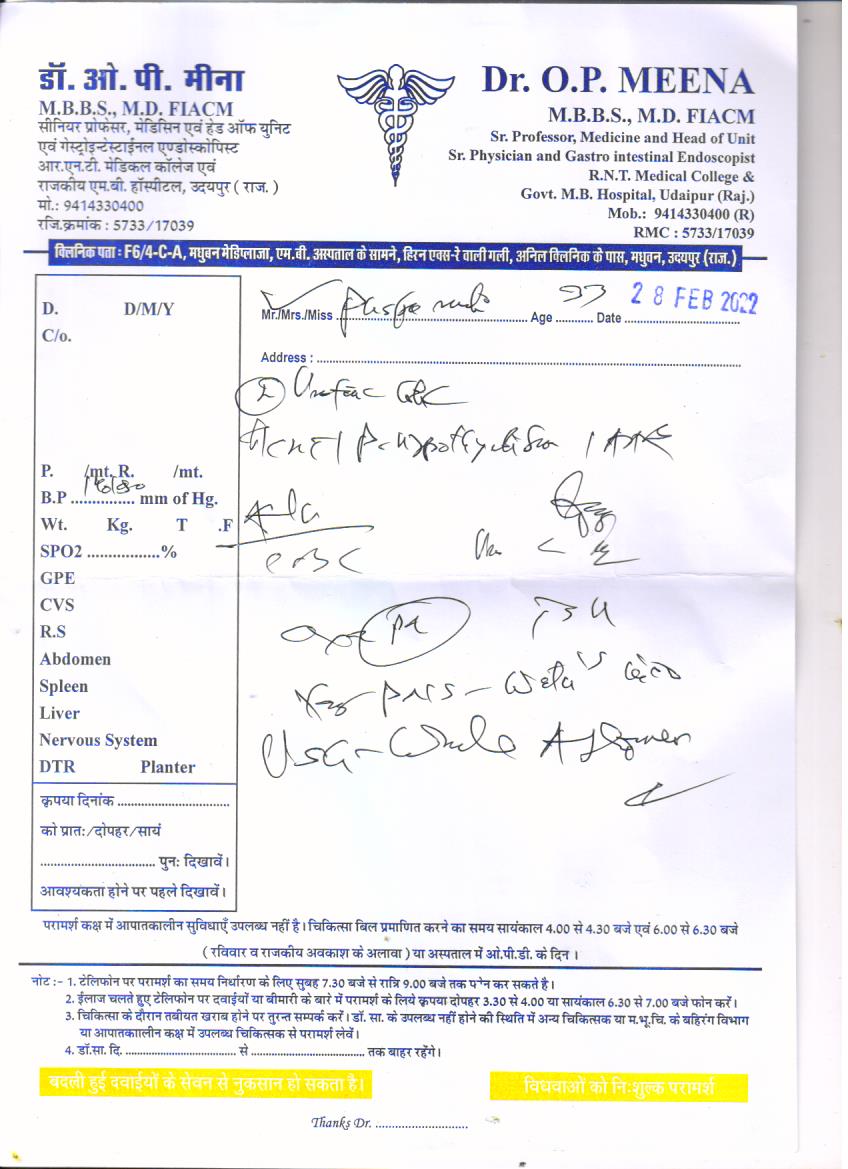 डॉ. ओ. पी. मीना
M.B.B.S., M.D. FIACM
सीनियर प्रोफेसर, मेडिसिन एवं हेड ऑफ युनिट
एवं गेस्ट्रोइन्टेस्टाईनल एण्डोस्कोपिस्ट
आर.एन.टी. मेडिकल कॉलेज एवं
राजकीय एम.बी. हॉस्पीटल, उदयपुर ( राज. )
मो.: 9414330400
रजि.क्रमांक : 5733/17039
Dr. O.P. MEENA
M.B.B.S., M.D. FIACM
Sr. Professor, Medicine and Head of Unit
Sr. Physician and Gastro intestinal Endoscopist
R.N.T. Medical College &
Govt. M.B. Hospital, Udaipur (Raj.)
Mob.: 9414330400 (R)
RMC : 5733/17039
क्लिनिक पता : F6/4-C-A, मधुबन मेडिप्लाजा, एम.बी. अस्पताल के सामने, हिरन एक्स-रे वाली गली, अनिल क्लिनिक के पास, मधुवन, उदयपुर (राज.)
D. D/M/Y
C/o.
P. /mt. R. /mt.
B.P ............... mm of Hg.
Wt. Kg. T .F
SPO2 .................%
GPE
CVS
R.S
Abdomen
Spleen
Liver
Nervous System
DTR Planter
कृपया दिनांक ...............................
को प्रातः/दोपहर/सायं
................................ पुनः दिखावें।
आवश्यकता होने पर पहले दिखावें।
Mr./Mrs./Miss ........ Age ........... Date 28 FEB 2022
Address : ........
USG - Whole Abdomen
परामर्श कक्ष में आपातकालीन सुविधाएँ उपलब्ध नहीं है। चिकित्सा बिल प्रमाणित करने का समय सायंकाल 4.00 से 4.30 बजे एवं 6.00 से 6.30 बजे
( रविवार व राजकीय अवकाश के अलावा ) या अस्पताल में ओ.पी.डी. के दिन ।
नोट :- 1. टेलिफोन पर परामर्श का समय निर्धारण के लिए सुबह 7.30 बजे से रात्रि 9.00 बजे तक फोन कर सकते है।
2. ईलाज चलते हुए टेलिफोन पर दवाईयों या बीमारी के बारे में परामर्श के लिये कृपया दोपहर 3.30 से 4.00 या सायंकाल 6.30 से 7.00 बजे फोन करें।
3. चिकित्सा के दौरान तबीयत खराब होने पर तुरन्त सम्पर्क करें। डॉ. सा. के उपलब्ध नहीं होने की स्थिति में अन्य चिकित्सक या म.भू.चि. के बहिरंग विभाग
या आपातकाालीन कक्ष में उपलब्ध चिकित्सक से परामर्श लेवें।
4. डॉ.सा. दि. .................................. से ................................... तक बाहर रहेंगे।
बदली हुई दवाईयों के सेवन से नुकसान हो सकता है।
विधवाओं को निःशुल्क परामर्श
Thanks Dr. ............................